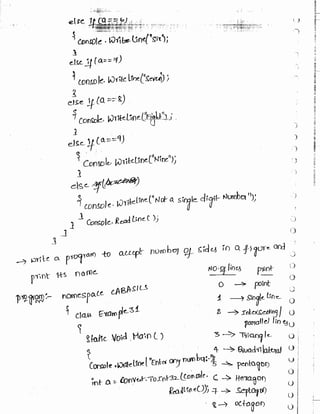 else if (a==6)
{
Console.WriteLine("Six");
}
else if (a==7)
{
console.WriteLine("Seven");
}
else if (a==8)
{
Console.WriteLine("Eight");
}
else if (a==9)
{
Console.WriteLine("Nine");
}
else
{
console.WriteLine("Not a single digit Number");
}
Console.ReadLine();
}
}
}
→ write a program to accept number of sides in a figure and
print its name.
NO of lines print
program:- namespace CABASICS
0 → point
{
1 → Single line
class Example31
2 → intersecting/
parallel lines
{
static Void Main()
3 → Triangle
{
4 → Quadrilateral
Console.WriteLine("Enter any number:");
5 → pentagon
int a = Convert.ToInt32(Console.
6 → Hexagon
ReadLine());
7 → Septagon
8 → octagon